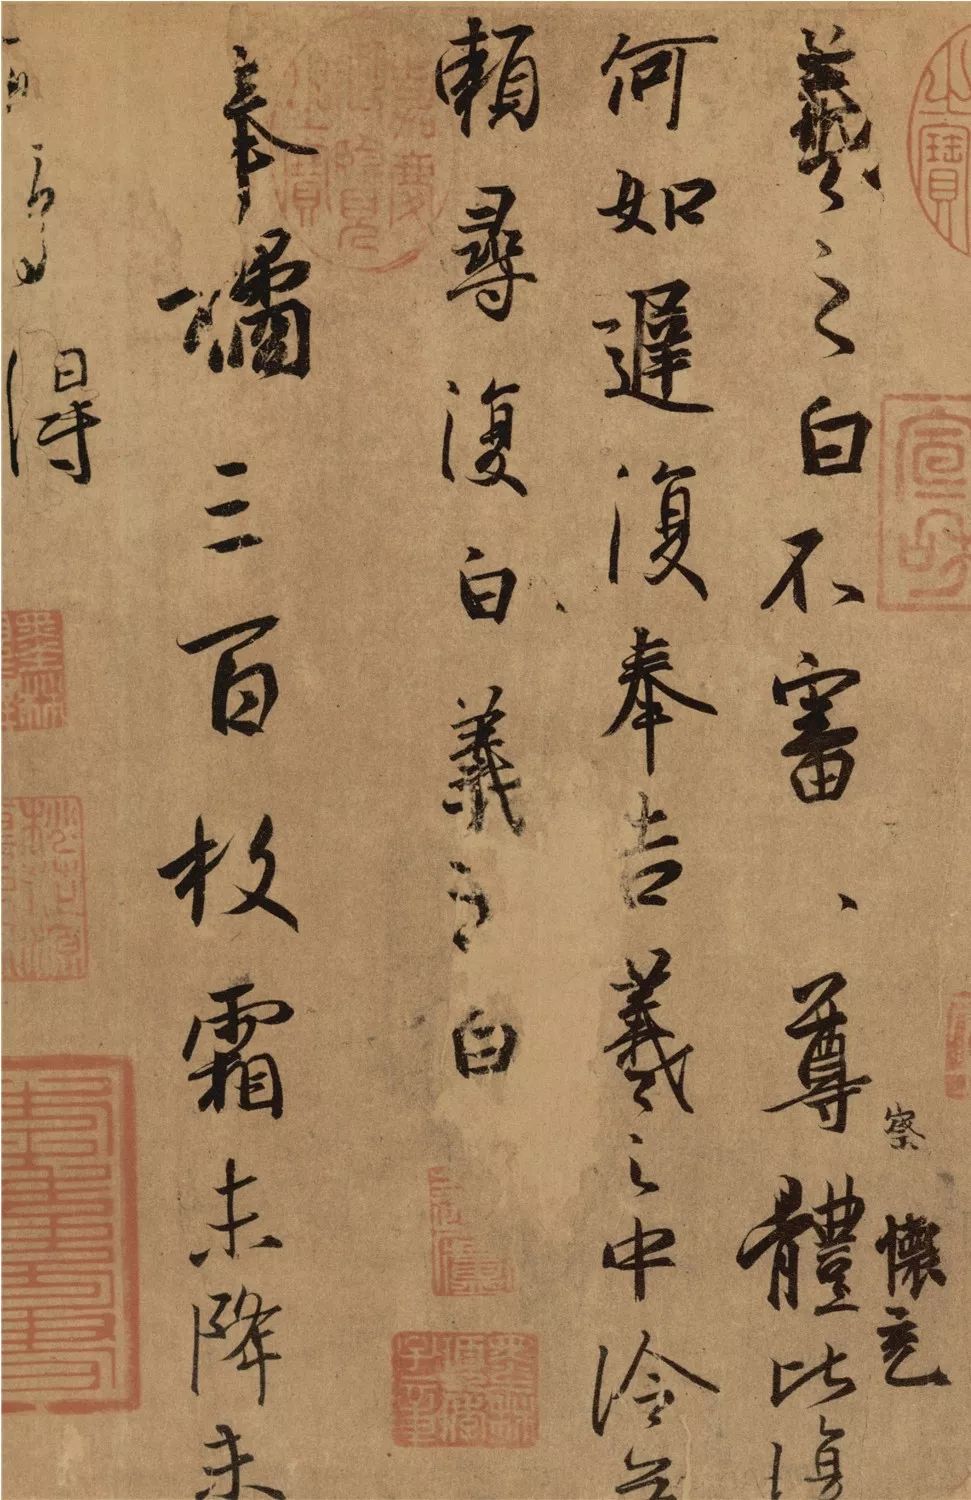 之寶
宣和
察
懷充
羲之白不審、尊體比復
何如遲復奉告羲之中冷無
賴尋復白羲之白
嘉慶御覽之寶
奉橘三百枚霜未降未
多得